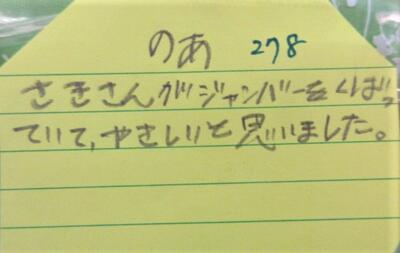 のあ 278
さきさんがジャンバーをくばっ
ていて、やさしいと思いました。